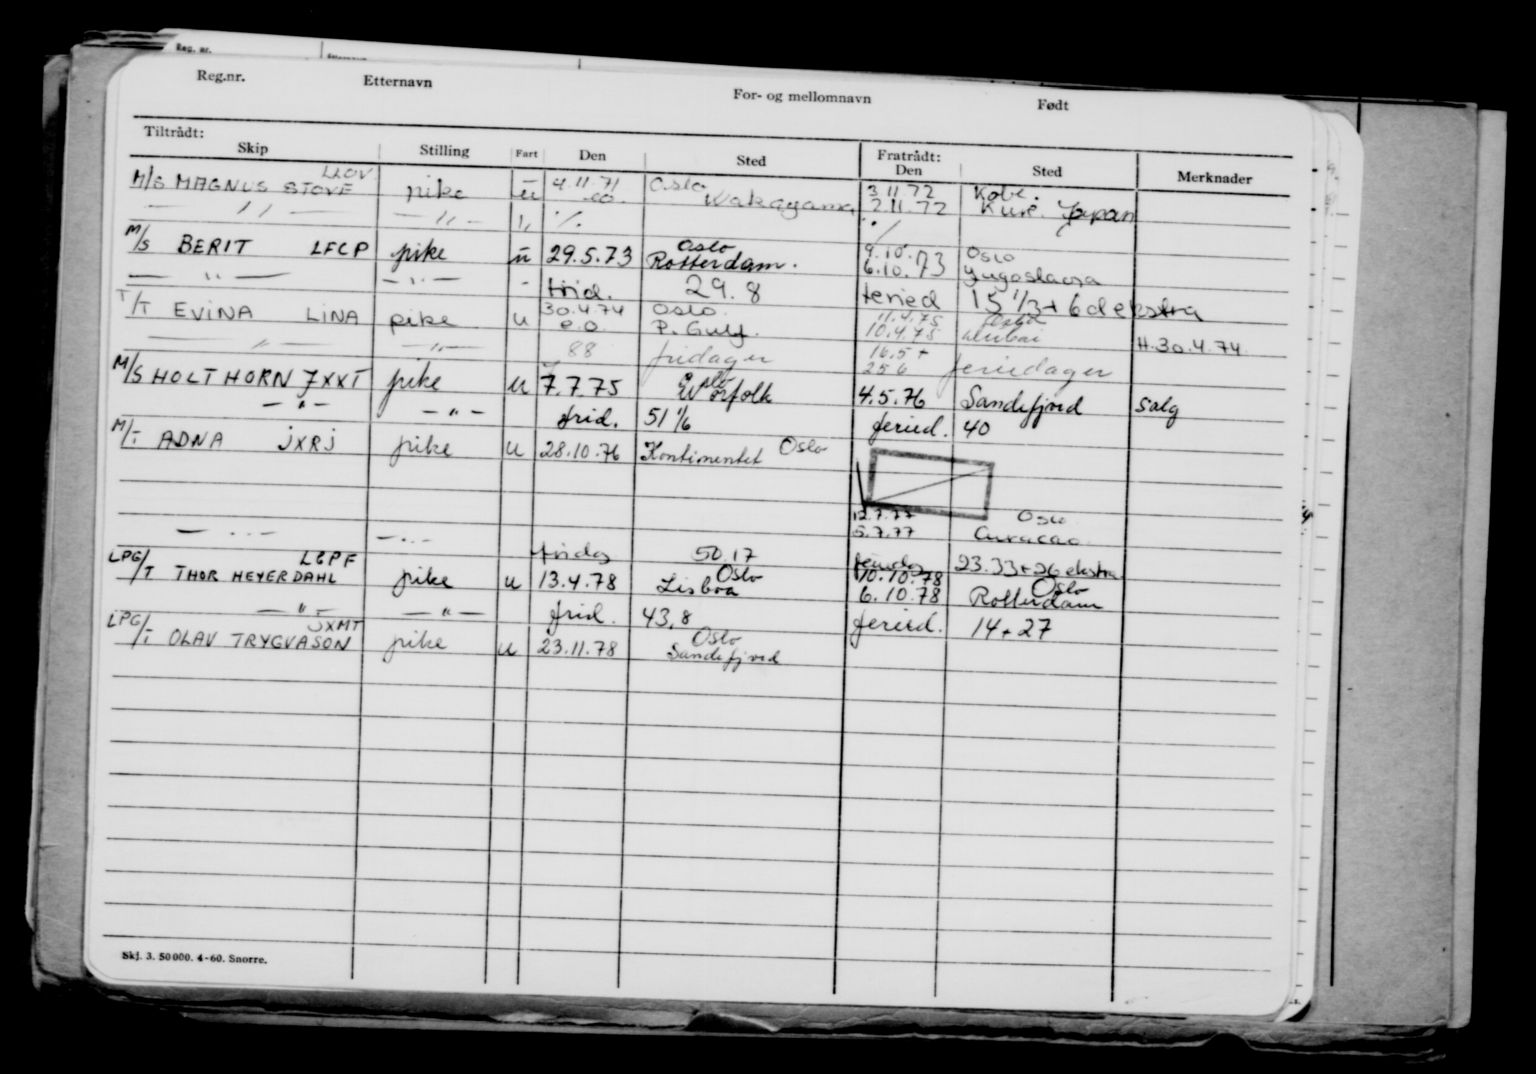 Reg. nr.
Reg.nr. Etternavn For- og mellomnavn Født
Tiltrådt: Fratrådt:
Skip Stilling Fart Den Sted Den Sted Merknader
M/S MAGNUS STOVE pike u 4.11.71 Oslo Wakayama 3.11.72 2.11.72 Kobe. Kure. Japan
— " — — " — " /.
M/S BERIT LFCP pike u 29.5.73 Oslo Rotterdam. 9.10. 6.10.73 Oslo Yugoslavia
— " — — " — - frid. 29.8 feried 15 1/3 + 6 d ekstra
T/T EVINA LINA pike u 30.4.74 e.o. Oslo. P. Gulf. 11.4.75 10.4.75 Dubai H.30.4.74
— " — — " — 88 fridager 16.5 + 25 6 feriedager
M/S HOLTHORN JXXT pike u 7.7.75 Oslo Norfolk 4.5.76 Sandefjord Salg
— " — — " — frid. 51 1/6 feried. 40
M/T ADNA JXRJ pike u 28.10.76 Kontinentet Oslo
12.7.77 Oslo
5.7.77 Curacao
— " — — " — fridg 50.17 feriedg 23.33+26 ekstra
LPG/T THOR HEYERDAHL LGPF pike u 13.4.78 Oslo Lisboa 10.10.78 6.10.78 Oslo Rotterdam
— " — — " — frid. 43,8 feried. 14+27
LPG/T OLAV TRYGVASON JXMT pike u 23.11.78 Oslo Sandefjord
Skj. 3. 50 000. 4-60. Snorre.